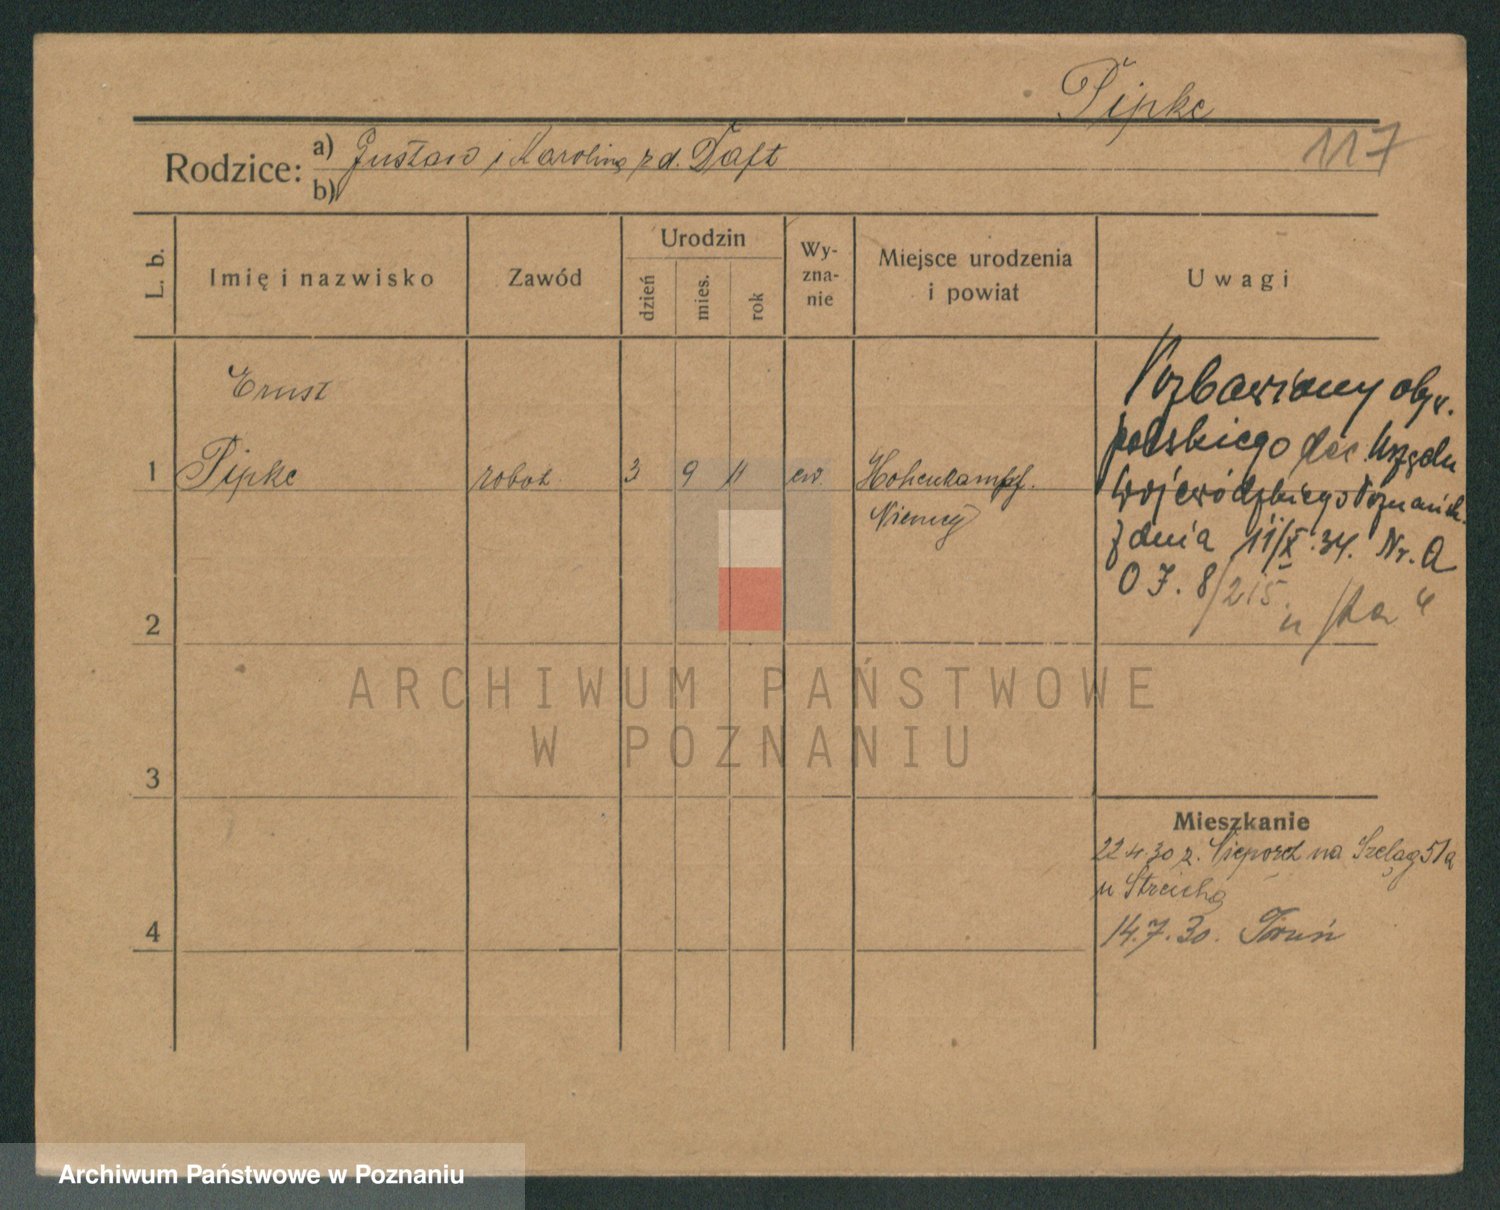 Pipke
117
Rodzice: a) Gustaw i Karolina z d. Taft
b)
L. b.
Imię i nazwisko
Zawód
Urodzin
dzień
mies.
rok
Wy-
zna-
nie
Miejsce urodzenia
i powiat
Uwagi
Ernst
1 Pipke robot. 3 9 11 ew. Hohenkampf.
Niemcy
Pozbawiony obyw.
polskiego dec Urzędu
Wojewódzkiego Poznańsk.
z dnia 11/X.34. Nr. A
O J. 8/215.
2
3
4
Mieszkanie
22 4 30 z. na Szeląg 51a
u Streicha
14.7.30. Toruń
ARCHIWUM PAŃSTWOWE
W POZNANIU
Archiwum Państwowe w Poznaniu